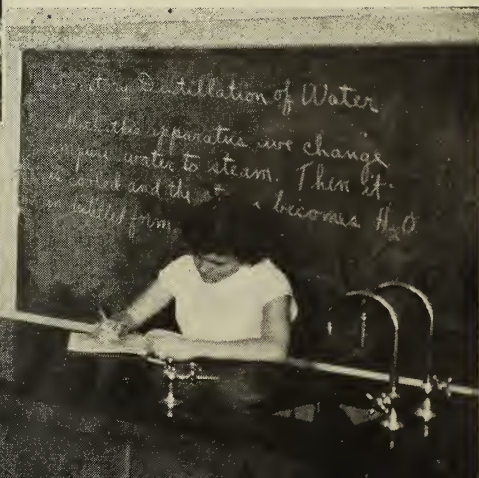 Destillation of Water
With this apparatus we change
impure water to steam. Then it
is cooled and the becomes H2O
in form